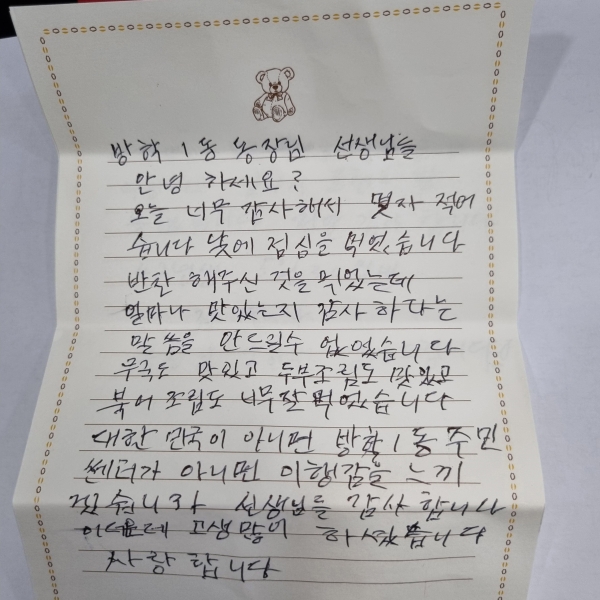 방학 1동 동장님 선생님들
안녕 하세요?
오늘 너무 감사해서 몇자 적어
습니다 낮에 점심을 먹었습니다
반찬 해주신 것을 먹었는데
얼마나 맛있는지 감사 하다는
말씀을 안드릴수 없었습니다
무국도 맛있고 두부조림도 맛있고
북어 조림도 너무잘 먹었습니다
대한 민국이 아니면 방학1동 주민
쎈터가 아니면 이행감을 느끼
선생님들 감사 합니다
고생많이 하셨습니다
사랑합니다